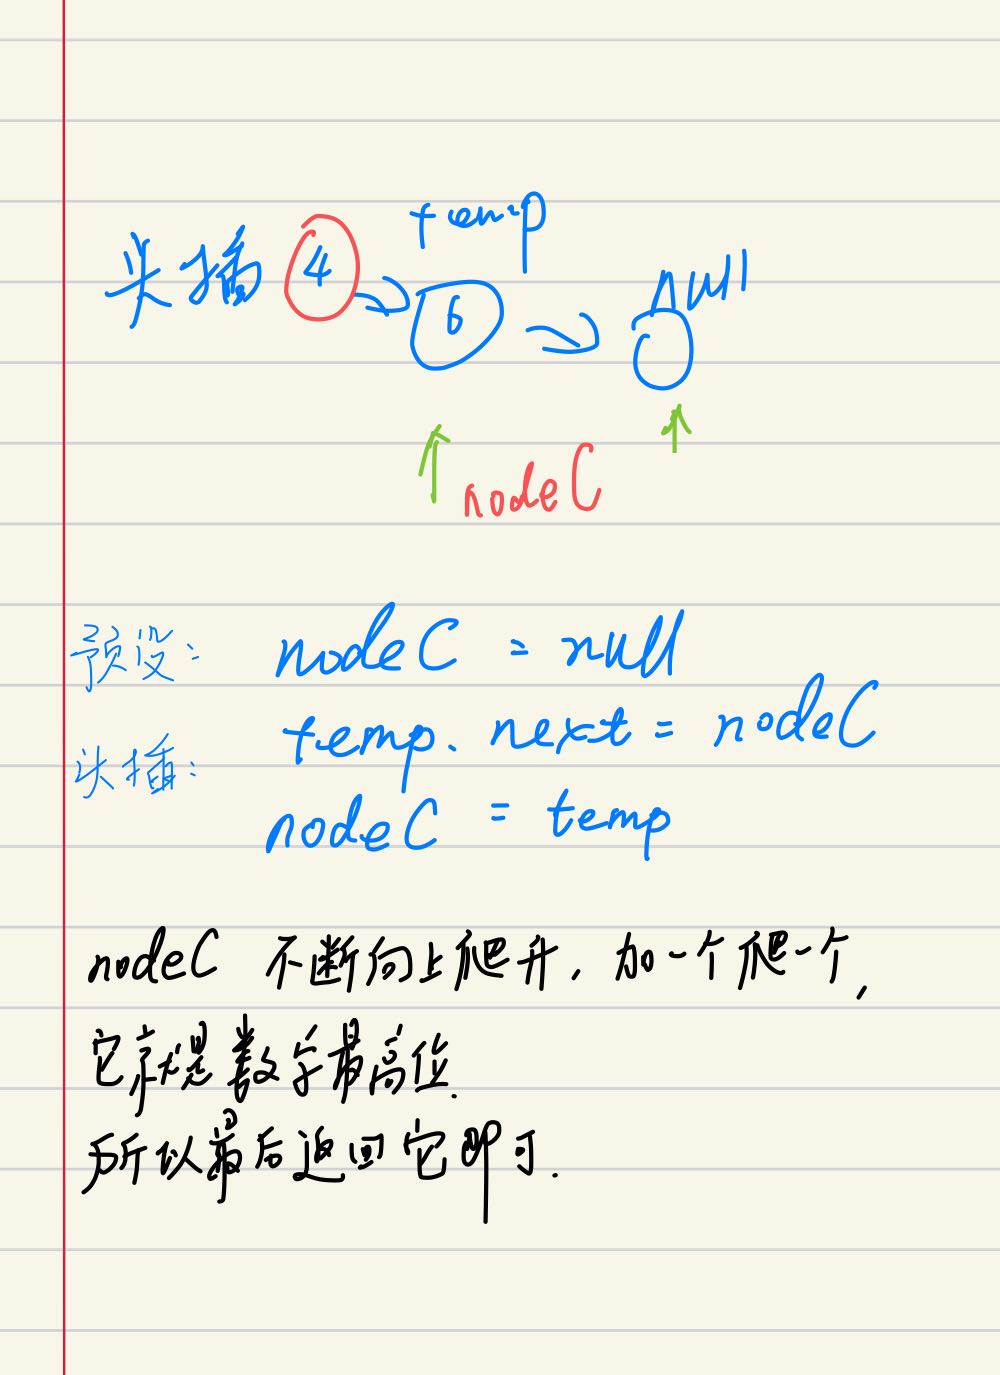 temp
头插 4
6
null
nodeC
预设: nodeC = null
temp. next = nodeC
头插:
nodeC = temp
nodeC 不断向上爬升, 加一个爬一个,
它就是数字最高位.
所以最后返回它即可.